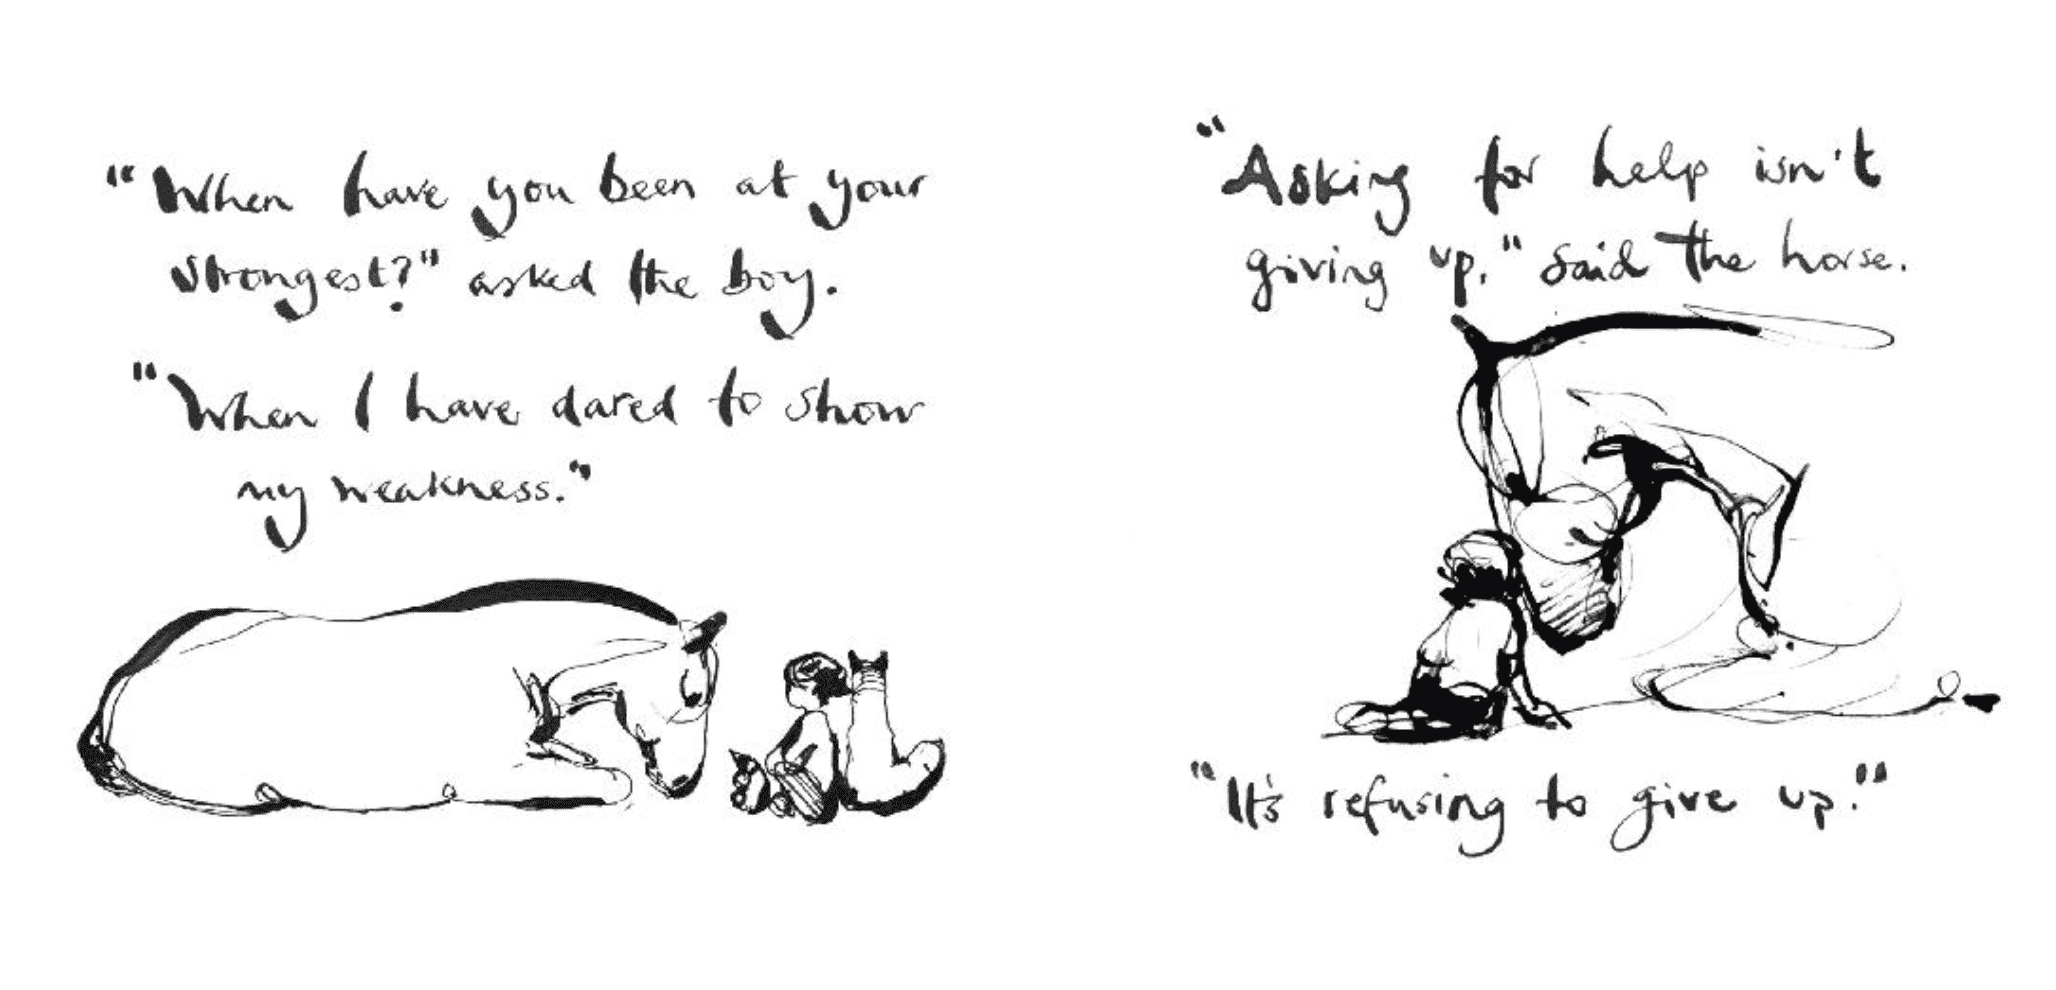 "When have you been at your
strongest?" asked the boy.
"When I have dared to show
my weakness."
"Asking for help isn't
giving up," said the horse.
"It's refusing to give up."